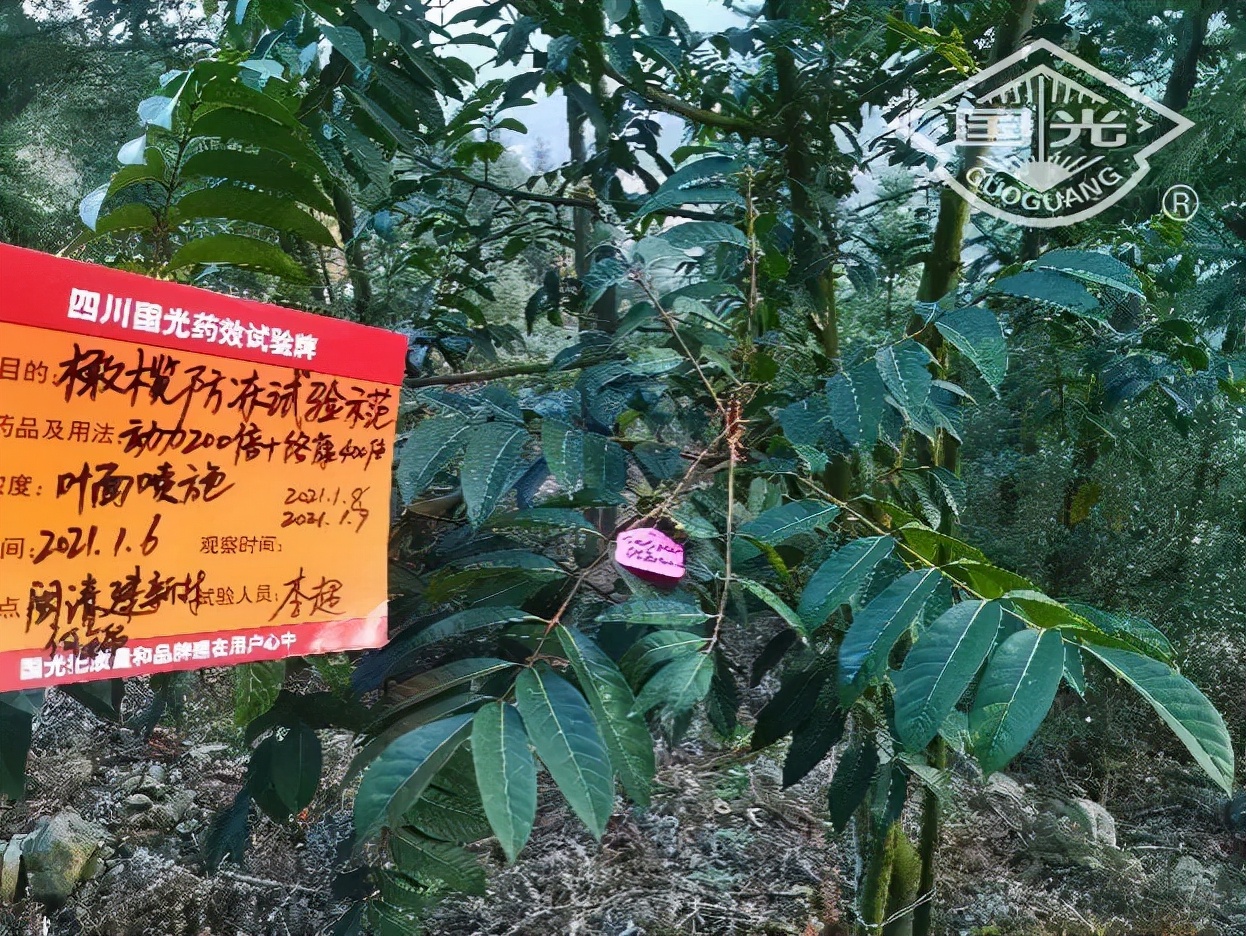 国光
GUOGUANG
®
四川国光药效试验牌
目的: 橄榄防冻试验示范
药品及用法 动力200倍+络薇400倍
度: 叶面喷施
2021.1.8
2021.1.9
间: 2021.1.6 观察时间:
点 闽清建新村 试验人员: 李超
国光把质量和品牌建在用户心中